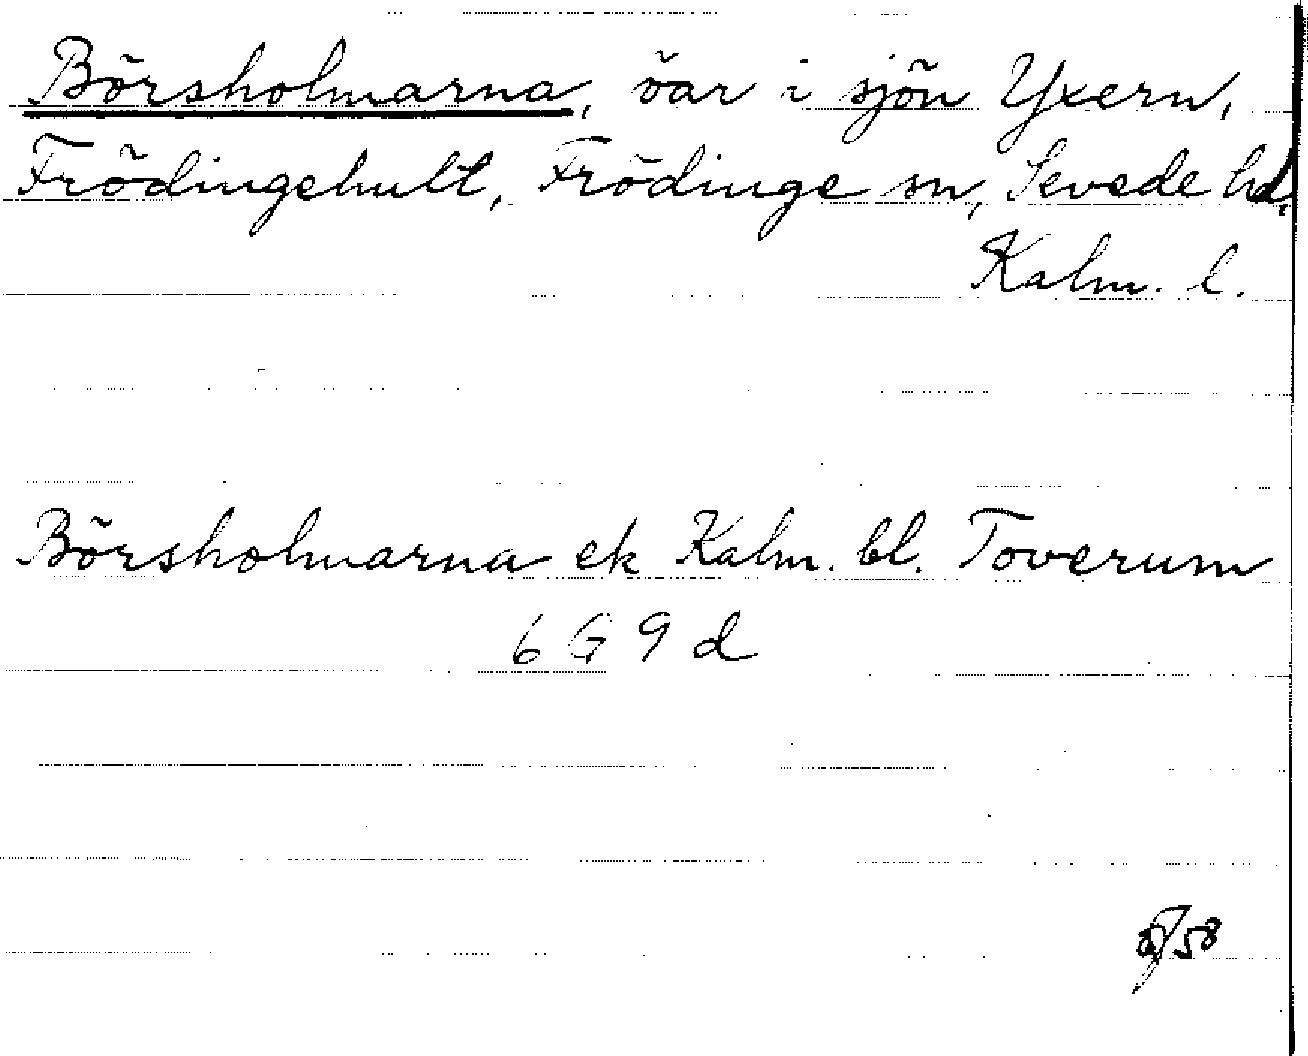 Börsholmarna, öar i sjön Yxern,
Frödingehult, Frödinge sn, Sevede hd,
Kalm. l.
Börsholmarna ek Kalm. bl. Toverum
6 G 9 d
58